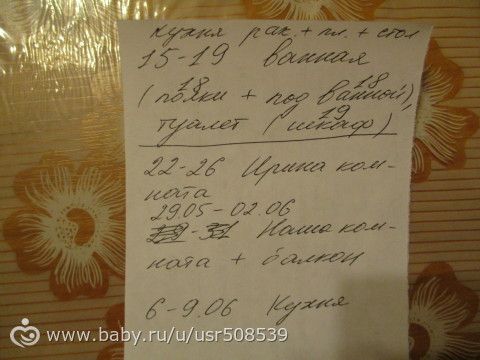 кухня рак. + пл. + стол
15-19 ванная
18 18
(полки + под ванной),
19
туалет (шкаф)
22-26 Ирина ком-
ната
29.05-02.06
31 Наша ком-
ната + балкон
6-9.06 Кухня
www.baby.ru/u/usr508539